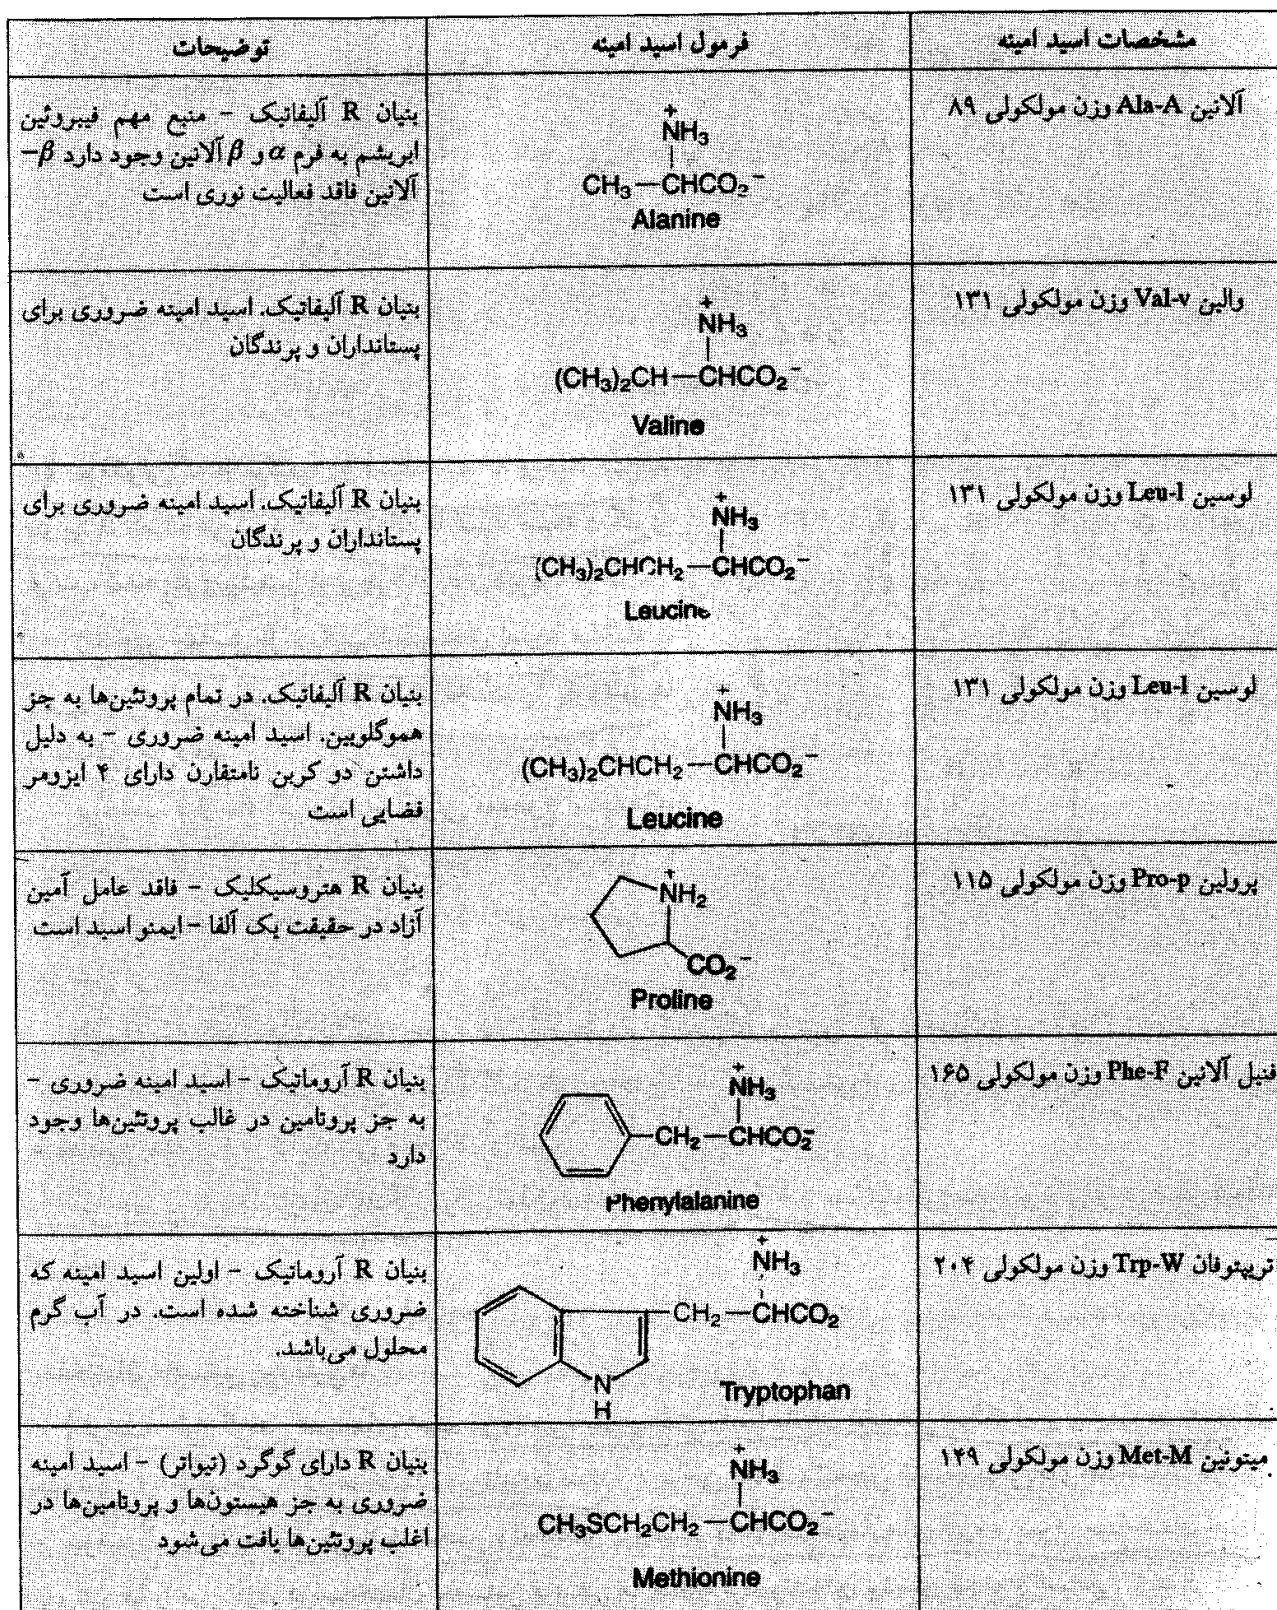 مشخصات اسید امینه
فرمول اسید امینه
توضیحات
آلانین Ala-A وزن مولکولی ۸۹
+
NH3
CH3—CHCO2−
Alanine
بنیان R آلیفاتیک – منبع مهم فیبروئین
ابریشم به فرم α و β آلانین وجود دارد β−
آلانین فاقد فعالیت نوری است
والین Val-v وزن مولکولی ۱۳۱
+
NH3
(CH3)2CH—CHCO2−
Valine
بنیان R آلیفاتیک. اسید امینه ضروری برای
پستانداران و پرندگان
لوسین Leu-l وزن مولکولی ۱۳۱
+
NH3
(CH3)2CHCH2—CHCO2−
Leucine
بنیان R آلیفاتیک. اسید امینه ضروری برای
پستانداران و پرندگان
لوسین Leu-l وزن مولکولی ۱۳۱
+
NH3
(CH3)2CHCH2—CHCO2−
Leucine
بنیان R آلیفاتیک. در تمام پروتئین‌ها به جز
هموگلوبین. اسید امینه ضروری – به دلیل
داشتن دو کربن نامتقارن دارای ۴ ایزومر
فضایی است
پرولین Pro-p وزن مولکولی ۱۱۵
+
NH2
CO2−
Proline
بنیان R هتروسیکلیک – فاقد عامل آمین
آزاد در حقیقت یک آلفا – ایمنو اسید است
فنیل آلانین Phe-F وزن مولکولی ۱۶۵
+
NH3
CH2—CHCO2−
Phenylalanine
بنیان R آروماتیک – اسید امینه ضروری –
به جز پروتامین در غالب پروتئین‌ها وجود
دارد
تریپتوفان Trp-W وزن مولکولی ۲۰۴
+
NH3
CH2—CHCO2
N
H
Tryptophan
بنیان R آروماتیک – اولین اسید امینه که
ضروری شناخته شده است. در آب گرم
محلول می‌باشد.
میتونین Met-M وزن مولکولی ۱۴۹
+
NH3
CH3SCH2CH2—CHCO2−
Methionine
بنیان R دارای گوگرد (تیواتر) – اسید امینه
ضروری به جز هیستون‌ها و پروتامین‌ها در
اغلب پروتئین‌ها یافت می‌شود